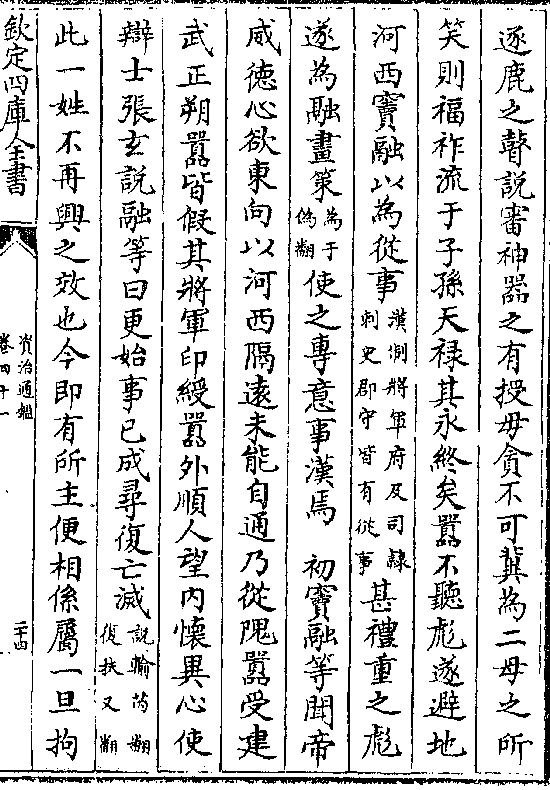 逐鹿之瞽說審神器之有授毋貪不可冀為二母之所
笑則福祚流于子孫天禄其永終矣囂不聽彪遂避地
河西竇融以為從事漢制將軍府及司隸刺史郡守皆有從事甚禮重之彪
遂為融畫策為于偽翻使之專意事漢焉 初竇融等聞帝
威徳心欲東向以河西隔遠未能自通乃從隗囂受建
武正朔囂皆假其將軍印綬囂外順人望內懷異心使
辯士張玄說融等曰更始事已成尋復亡滅說輸芮翻復扶又翻
此一姓不再興之效也今即有所主便相係屬一旦拘
欽定四庫全書
資治通鑑
卷四十一
二十四